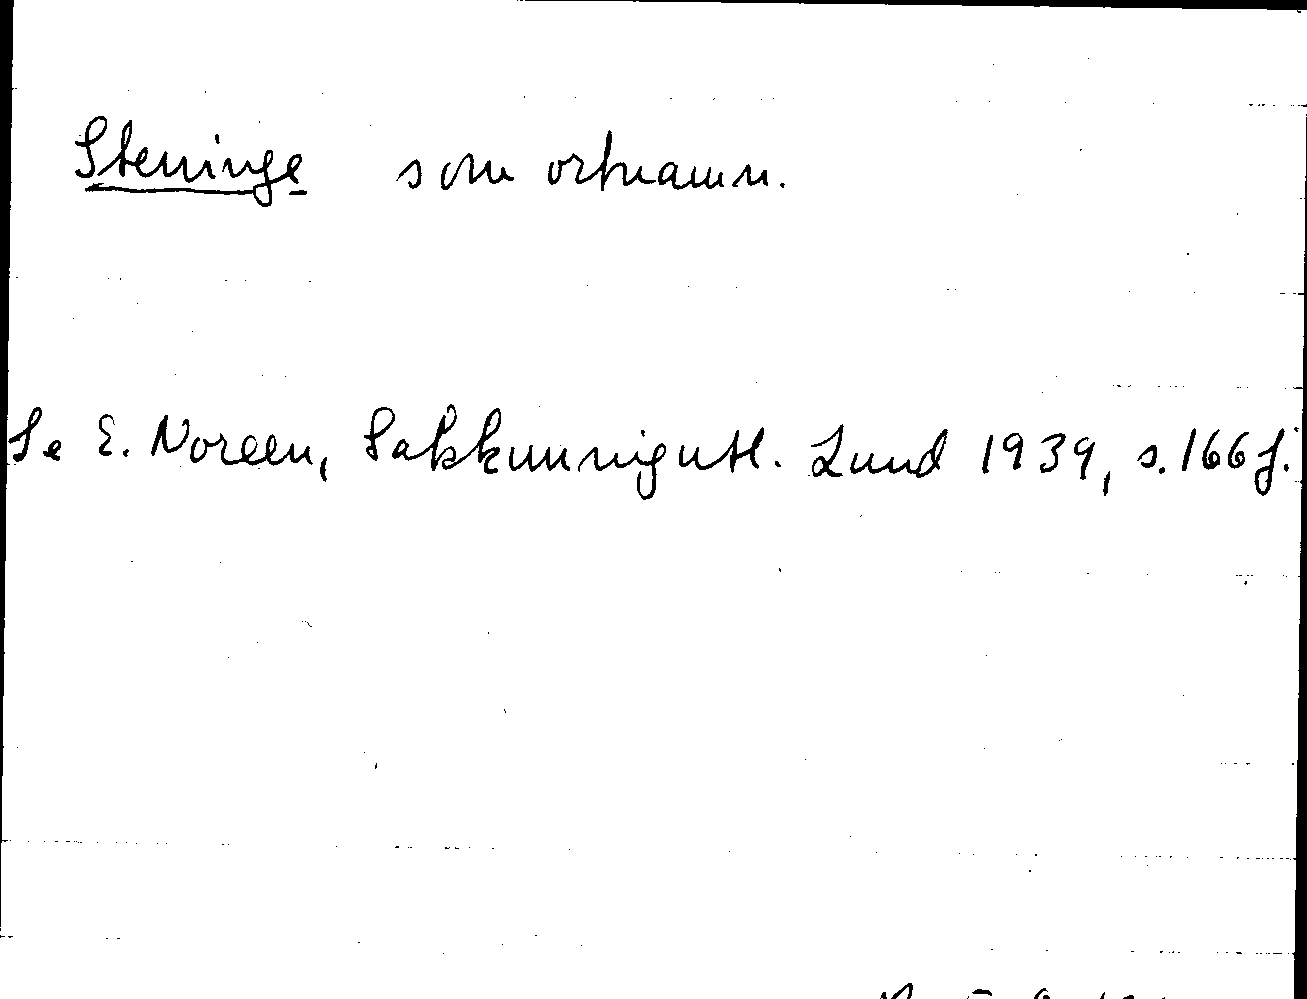 Steninge som ortnamn.
Se E. Noreen, Sakkunnigutl. Lund 1939, s. 166 f.